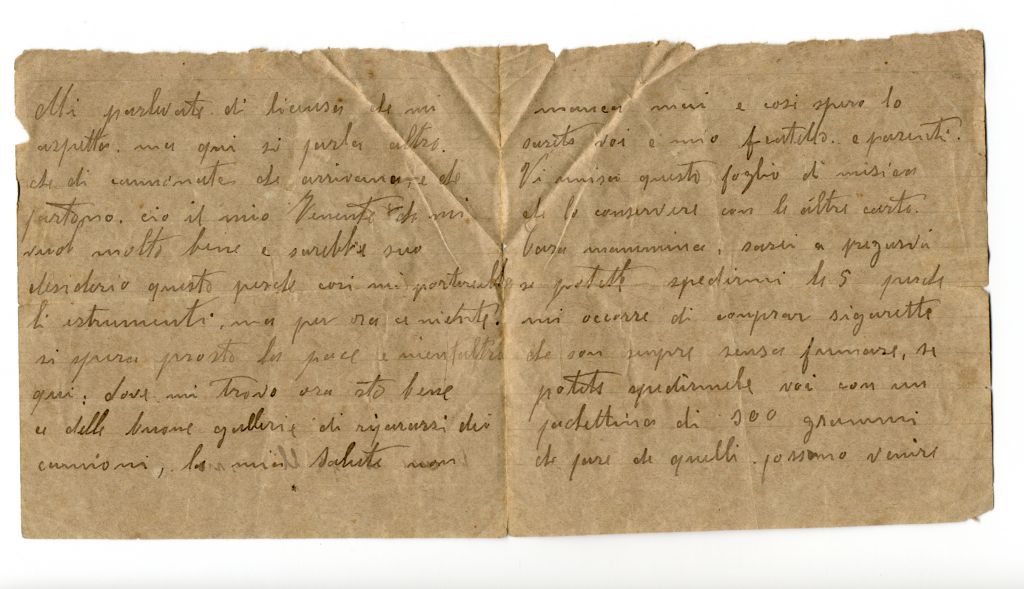 Mi parlavate di licensa che mi
aspetta. ma qui si parla altro.
che di cannonate che arrivano, e che
partono. cio il mio Tenente che mi
vuol molto bene e sarebbe suo
desiderio questo perche cosi mi porterebbe
li istrumenti, ma per ora ce niente.
si spera presto la pace e nientaltro
qui. dove mi trovo ora sto bene
ce delle buone gallerie di ripararsi dei
cannoni, la mia salute non
manca mai e cosi spero lo
sarete voi e mio fratello. e parenti.
Vi unisco questo foglio di musica
che lo conservere con le altre carte.
Cara mammina, sarei a pregarvi
se potete spedirmi le 5 perche
mi occorre di comprar sigarette
che son sempre sensa fumare, se
potete spedirmele voi con un
pachettino di 300 grammi
che pare che quelli possano venire